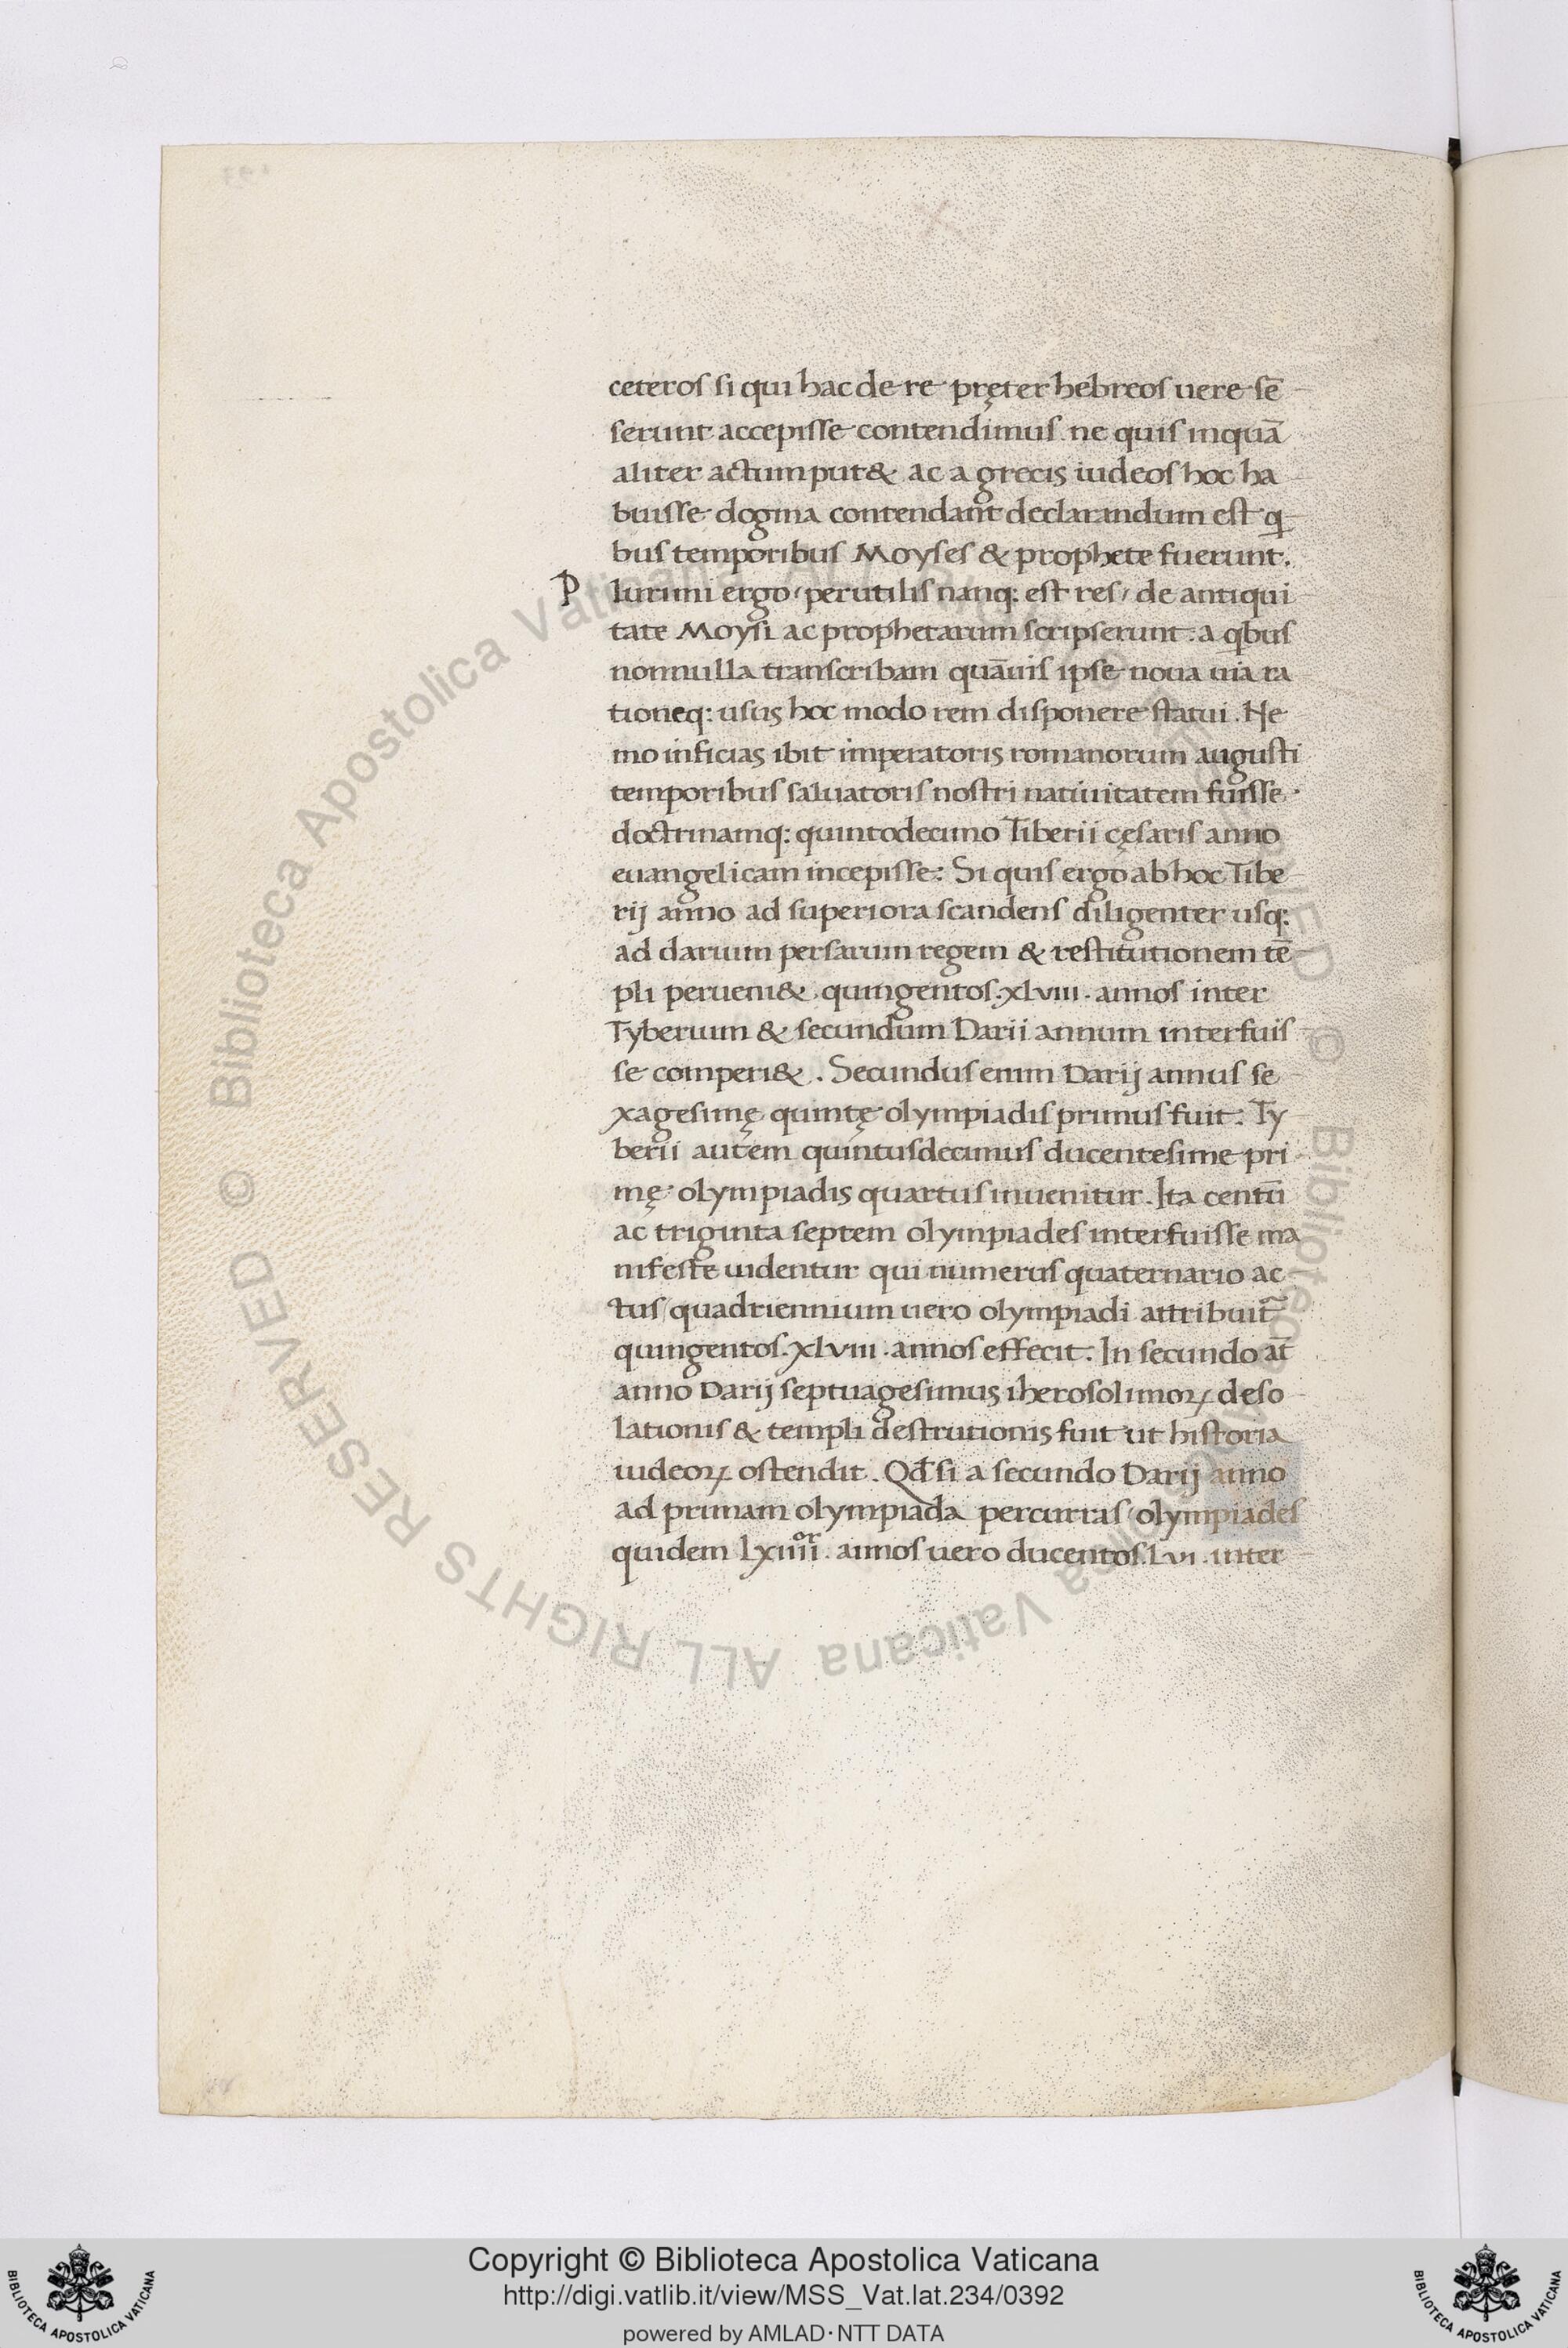 ceteros si qui hac de re pręter hebreos uere sē
serunt accepisse contendimus. ne quis inquā
aliter actum put& ac a grecis iudeos hoc ha
buisse dogma contendant declarandum est q
bus temporibus Moyses & prophete fuerunt.
Plurimi ergo / perutilis nanq: est res / de antiqui
tate Moysi ac prophetarum scripserunt: a qbus
nonnulla transcribam quāuis ipse noua uia ra
tioneq: usus hoc modo rem disponere statui. Ne
mo inficias ibit imperatoris romanorum augusti
temporibus saluatoris nostri natiuitatem fuisse
doctrinamq: quintodecimo Tiberii cęsaris anno
euangelicam incepisse: Si quis ergo ab hoc Tibe
rij anno ad superiora scandens diligenter usq:
ad darium persarum regem & restitutionem tē
pli perueni& quingentos. xlviii. annos inter
Tyberium & secundum Darii annum interfuis
se comperi&. Secundus enim Darij annus se
xagesimę quintę olympiadis primus fuit: Ty
berii autem quintusdecimus ducentesime pri
mę olympiadis quartus inuenitur. Ita centū
ac triginta septem olympiades interfuisse ma
nifeste uidentur qui numerus quaternario ac
tus / quadriennium uero olympiadi attribuit̃
quingentos. xlviii. annos effecit. In secundo at̄
anno Darij septuagesimus iherosolimoꝝ deso
lationis & templi destrutionis fuit ut historia
iudeoꝝ ostendit. Qđ si a secundo Darij anno
ad primam olympiada percurras / olympiades
quidem lxiiiior. annos uero ducentos. Lvi. inter
© Biblioteca Apostolica Vaticana ALL RIGHTS RESERVED © Biblioteca Apostolica Vaticana ALL RIGHTS RESERVED
Copyright © Biblioteca Apostolica Vaticana
http://digi.vatlib.it/view/MSS_Vat.lat.234/0392
powered by AMLAD·NTT DATA
BIBLIOTECA APOSTOLICA VATICANA
BIBLIOTECA APOSTOLICA VATICANA